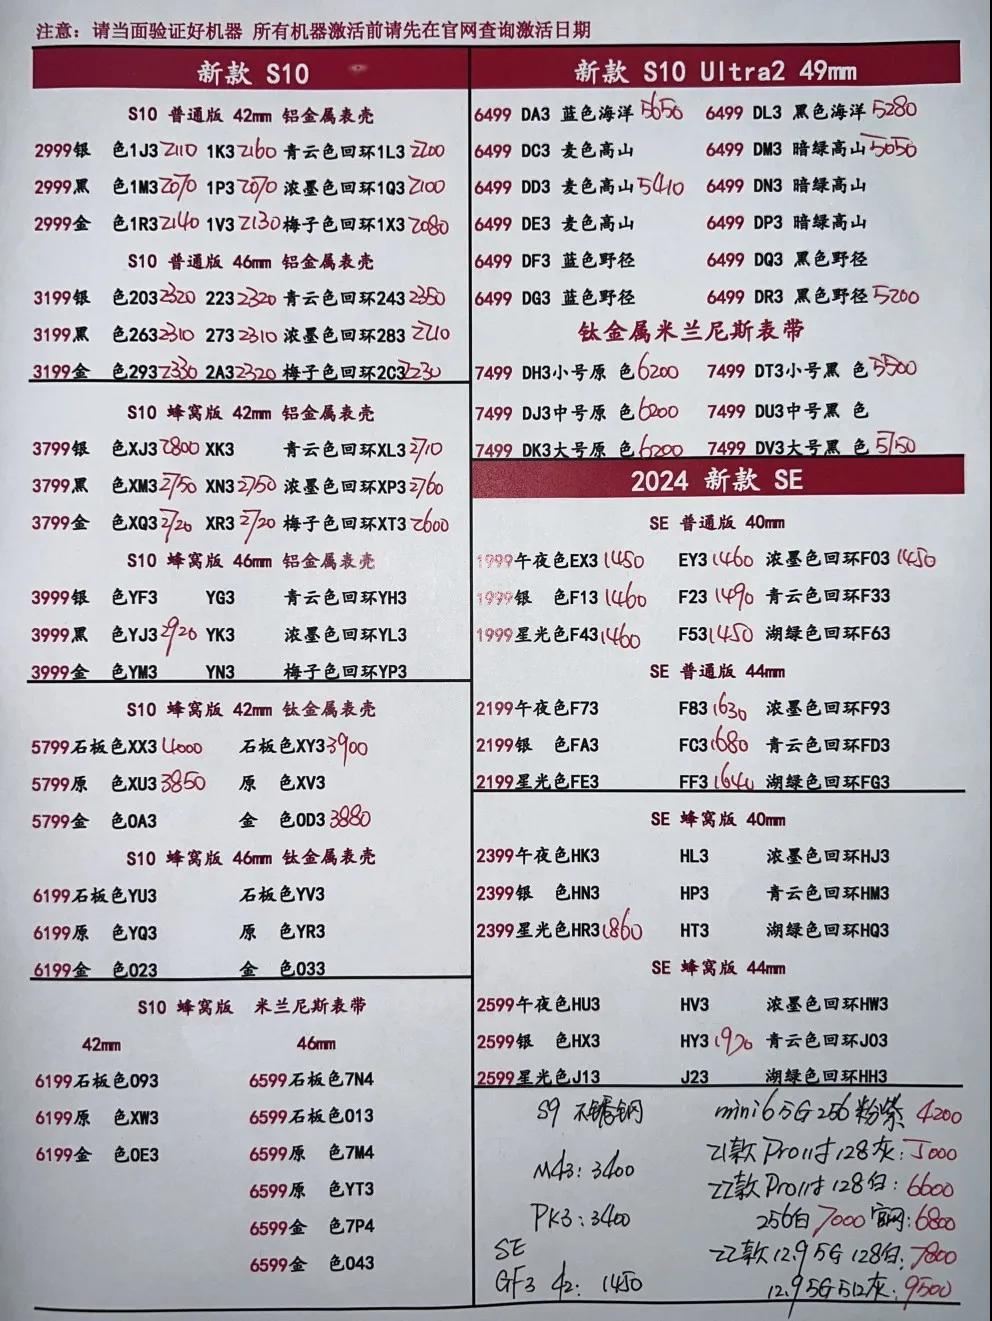 注意：请当面验证好机器 所有机器激活前请先在官网查询激活日期
新款 S10
S10 普通版 42mm 铝金属表壳
2999银 色1J3 2110 1K3 2160 青云色回环1L3 2200
2999黑 色1M3 2070 1P3 2070 浓墨色回环1Q3 2100
2999金 色1R3 2140 1V3 2130 梅子色回环1X3 2080
S10 普通版 46mm 铝金属表壳
3199银 色203 2320 223 2320 青云色回环243 2350
3199黑 色263 2310 273 2310 浓墨色回环283 2210
3199金 色293 2330 2A3 2320 梅子色回环2C3 2230
S10 蜂窝版 42mm 铝金属表壳
3799银 色XJ3 2800 XK3 青云色回环XL3 2710
3799黑 色XM3 2750 XN3 2750 浓墨色回环XP3 2760
3799金 色XQ3 2720 XR3 2720 梅子色回环XT3 2600
S10 蜂窝版 46mm 铝金属表壳
3999银 色YF3 YG3 青云色回环YH3
3999黑 色YJ3 2920 YK3 浓墨色回环YL3
3999金 色YM3 YN3 梅子色回环YP3
S10 蜂窝版 42mm 钛金属表壳
5799石板色XX3 4000 石板色XY3 3900
5799原 色XU3 3850 原 色XV3
5799金 色0A3 金 色0D3 3880
S10 蜂窝版 46mm 钛金属表壳
6199石板色YU3 石板色YV3
6199原 色YQ3 原 色YR3
6199金 色023 金 色033
S10 蜂窝版 米兰尼斯表带
42mm 46mm
6199石板色093 6599石板色7N4
6199原 色XW3 6599石板色013
6199金 色0E3 6599原 色7M4
6599原 色YT3
6599金 色7P4
6599金 色043
新款 S10 Ultra2 49mm
6499 DA3 蓝色海洋 5650 6499 DL3 黑色海洋 5280
6499 DC3 麦色高山 6499 DM3 暗绿高山 5050
6499 DD3 麦色高山 5410 6499 DN3 暗绿高山
6499 DE3 麦色高山 6499 DP3 暗绿高山
6499 DF3 蓝色野径 6499 DQ3 黑色野径
6499 DG3 蓝色野径 6499 DR3 黑色野径 5200
钛金属米兰尼斯表带
7499 DH3小号原 色 6200 7499 DT3小号黑 色 5500
7499 DJ3中号原 色 6200 7499 DU3中号黑 色
7499 DK3大号原 色 6200 7499 DV3大号黑 色 5150
2024 新款 SE
SE 普通版 40mm
1999午夜色EX3 1450 EY3 1460 浓墨色回环F03 1450
1999银 色F13 1460 F23 1490 青云色回环F33
1999星光色F43 1460 F53 1450 湖绿色回环F63
SE 普通版 44mm
2199午夜色F73 F83 1630 浓墨色回环F93
2199银 色FA3 FC3 1680 青云色回环FD3
2199星光色FE3 FF3 1640 湖绿色回环FG3
SE 蜂窝版 40mm
2399午夜色HK3 HL3 浓墨色回环HJ3
2399银 色HN3 HP3 青云色回环HM3
2399星光色HR3 1860 HT3 湖绿色回环HQ3
SE 蜂窝版 44mm
2599午夜色HU3 HV3 浓墨色回环HW3
2599银 色HX3 HY3 1920 青云色回环J03
2599星光色J13 J23 湖绿色回环HH3
S9 不锈钢
M43：3400
PK3：3400
SE
GF3 42：1450
mini6 5G 256 粉紫 4200
21款 Pro11寸 128灰：5000
22款 Pro11寸 128白：6600
256白 7000 官网：6800
22款 12.9 5G 128白：7800
12.9 5G 512灰：9500